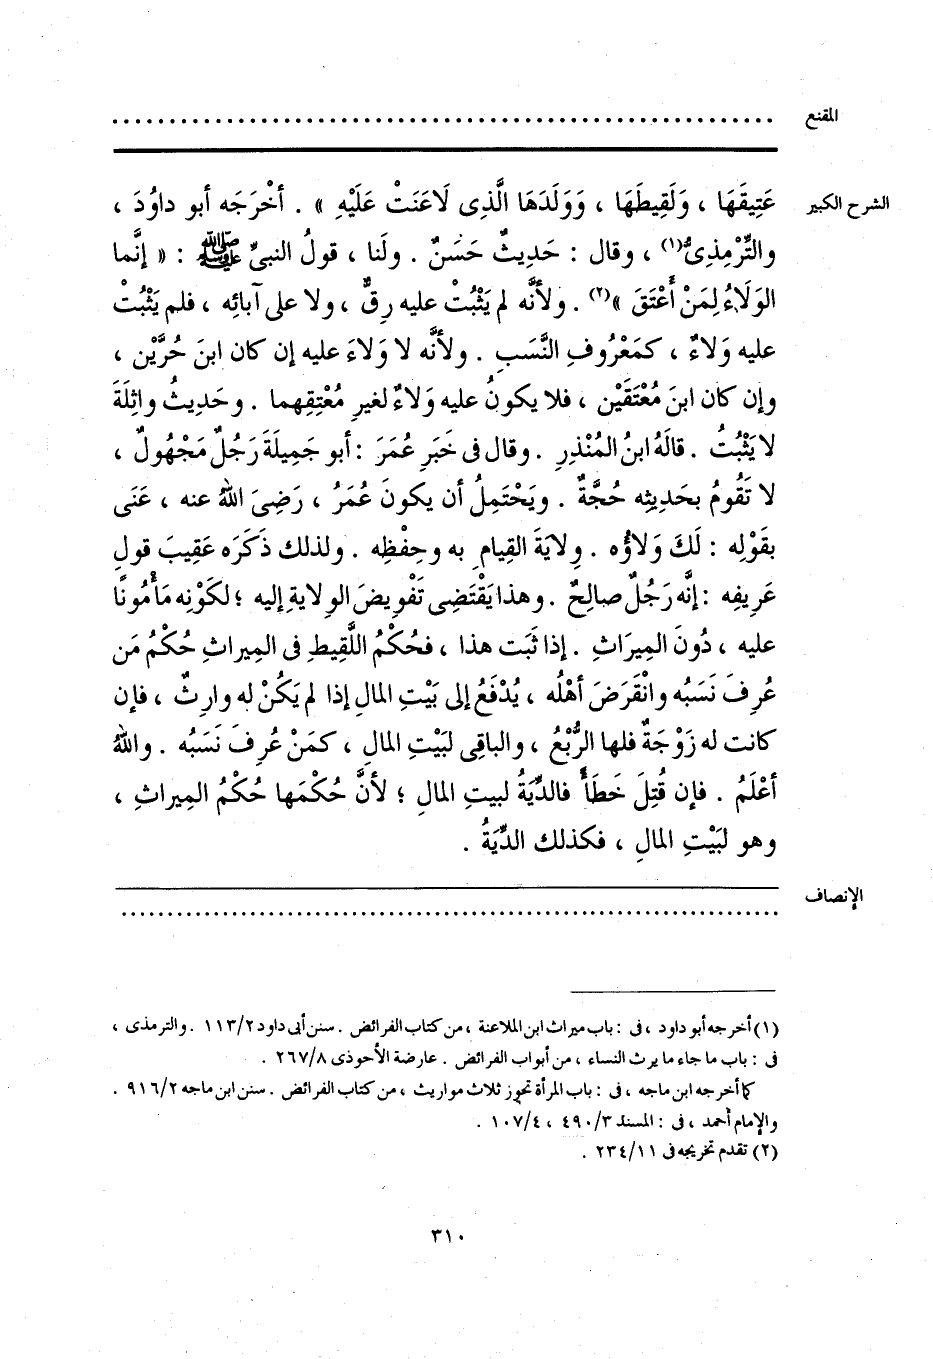 المقنع ..........................................................
الشرح الكبير عَتِيقَهَا ، وَلَقِيطَهَا ، وَوَلَدَهَا الَّذِى لَاعَنَتْ عَلَيْهِ » . أخْرَجَه أبو داوُدَ ،
والتِّرْمِذِىُّ(١) ، وقال : حَدِيثٌ حَسَنٌ . ولَنا ، قولُ النبىِّ ﷺ : « إنَّما
الوَلَاءُ لِمَنْ أَعْتَقَ »(٢) . ولأنَّه لم يَثْبُتْ عليه رِقٌّ ، ولا على آبائِه ، فلم يَثْبُتْ
عليه وَلاءٌ ، كمَعْرُوفِ النَّسَبِ . ولأنَّه لا وَلاءَ عليه إن كان ابنَ حُرَّيْن ،
وإن كان ابنَ مُعْتَقَيْن ، فلا يكونُ عليه وَلاءٌ لغيرِ مُعْتِقِهما . وحَدِيثُ واثِلَةَ
لا يَثْبُتُ . قالَهُ ابنُ المُنْذِرِ . وقال فى خَبَرِ عُمَرَ : أبو جَمِيلَةَ رَجُلٌ مَجْهُولٌ ،
لا تَقُومُ بحَدِيثِه حُجَّةٌ . ويَحْتَمِلُ أن يكونَ عُمَرُ ، رَضِىَ اللهُ عنه ، عَنَى
بقَوْلِه : لَكَ وَلاؤُه . وِلايَةَ القِيامِ به وحِفْظِه . ولذلك ذَكَرَه عَقِيبَ قولِ
عَرِيفِه : إنَّه رَجُلٌ صالِحٌ . وهذا يَقْتَضِى تَفْوِيضَ الولايةِ إليه ؛ لكَوْنِه مَأْمُونًا
عليه ، دُونَ المِيرَاثِ . إذا ثَبَت هذا ، فحُكْمُ اللَّقِيطِ فى المِيراثِ حُكْمُ مَن
عُرِفَ نَسَبُه وانْقَرَضَ أهْلُه ، يُدْفَعُ إلى بَيْتِ المالِ إذا لم يَكُنْ له وارِثٌ ، فإن
كانت له زَوْجَةٌ فلها الرُّبْعُ ، والباقِى لبَيْتِ المالِ ، كمَنْ عُرِفَ نَسَبُه . واللهُ
أعْلَمُ . فإن قُتِلَ خَطَأً فالدِّيَةُ لبيتِ المالِ ؛ لأنَّ حُكْمَها حُكْمُ المِيراثِ ،
وهو لبَيْتِ المالِ ، فكذلك الدِّيَةُ .
الإنصاف ..........................................................
(١) أخرجه أبو داود ، فى : باب ميراث ابن الملاعنة ، من كتاب الفرائض . سنن أبى داود ١١٣/٢ . والترمذى ،
فى : باب ما جاء ما يرث النساء ، من أبواب الفرائض . عارضة الأحوذى ٢٦٧/٨ .
كما أخرجه ابن ماجه ، فى : باب المرأة تحوز ثلاث مواريث ، من كتاب الفرائض . سنن ابن ماجه ٩١٦/٢ .
والإمام أحمد ، فى : المسند ٤٩٠/٣ ، ١٠٧/٤ .
(٢) تقدم تخريجه فى ٢٣٤/١١ .
٣١٠